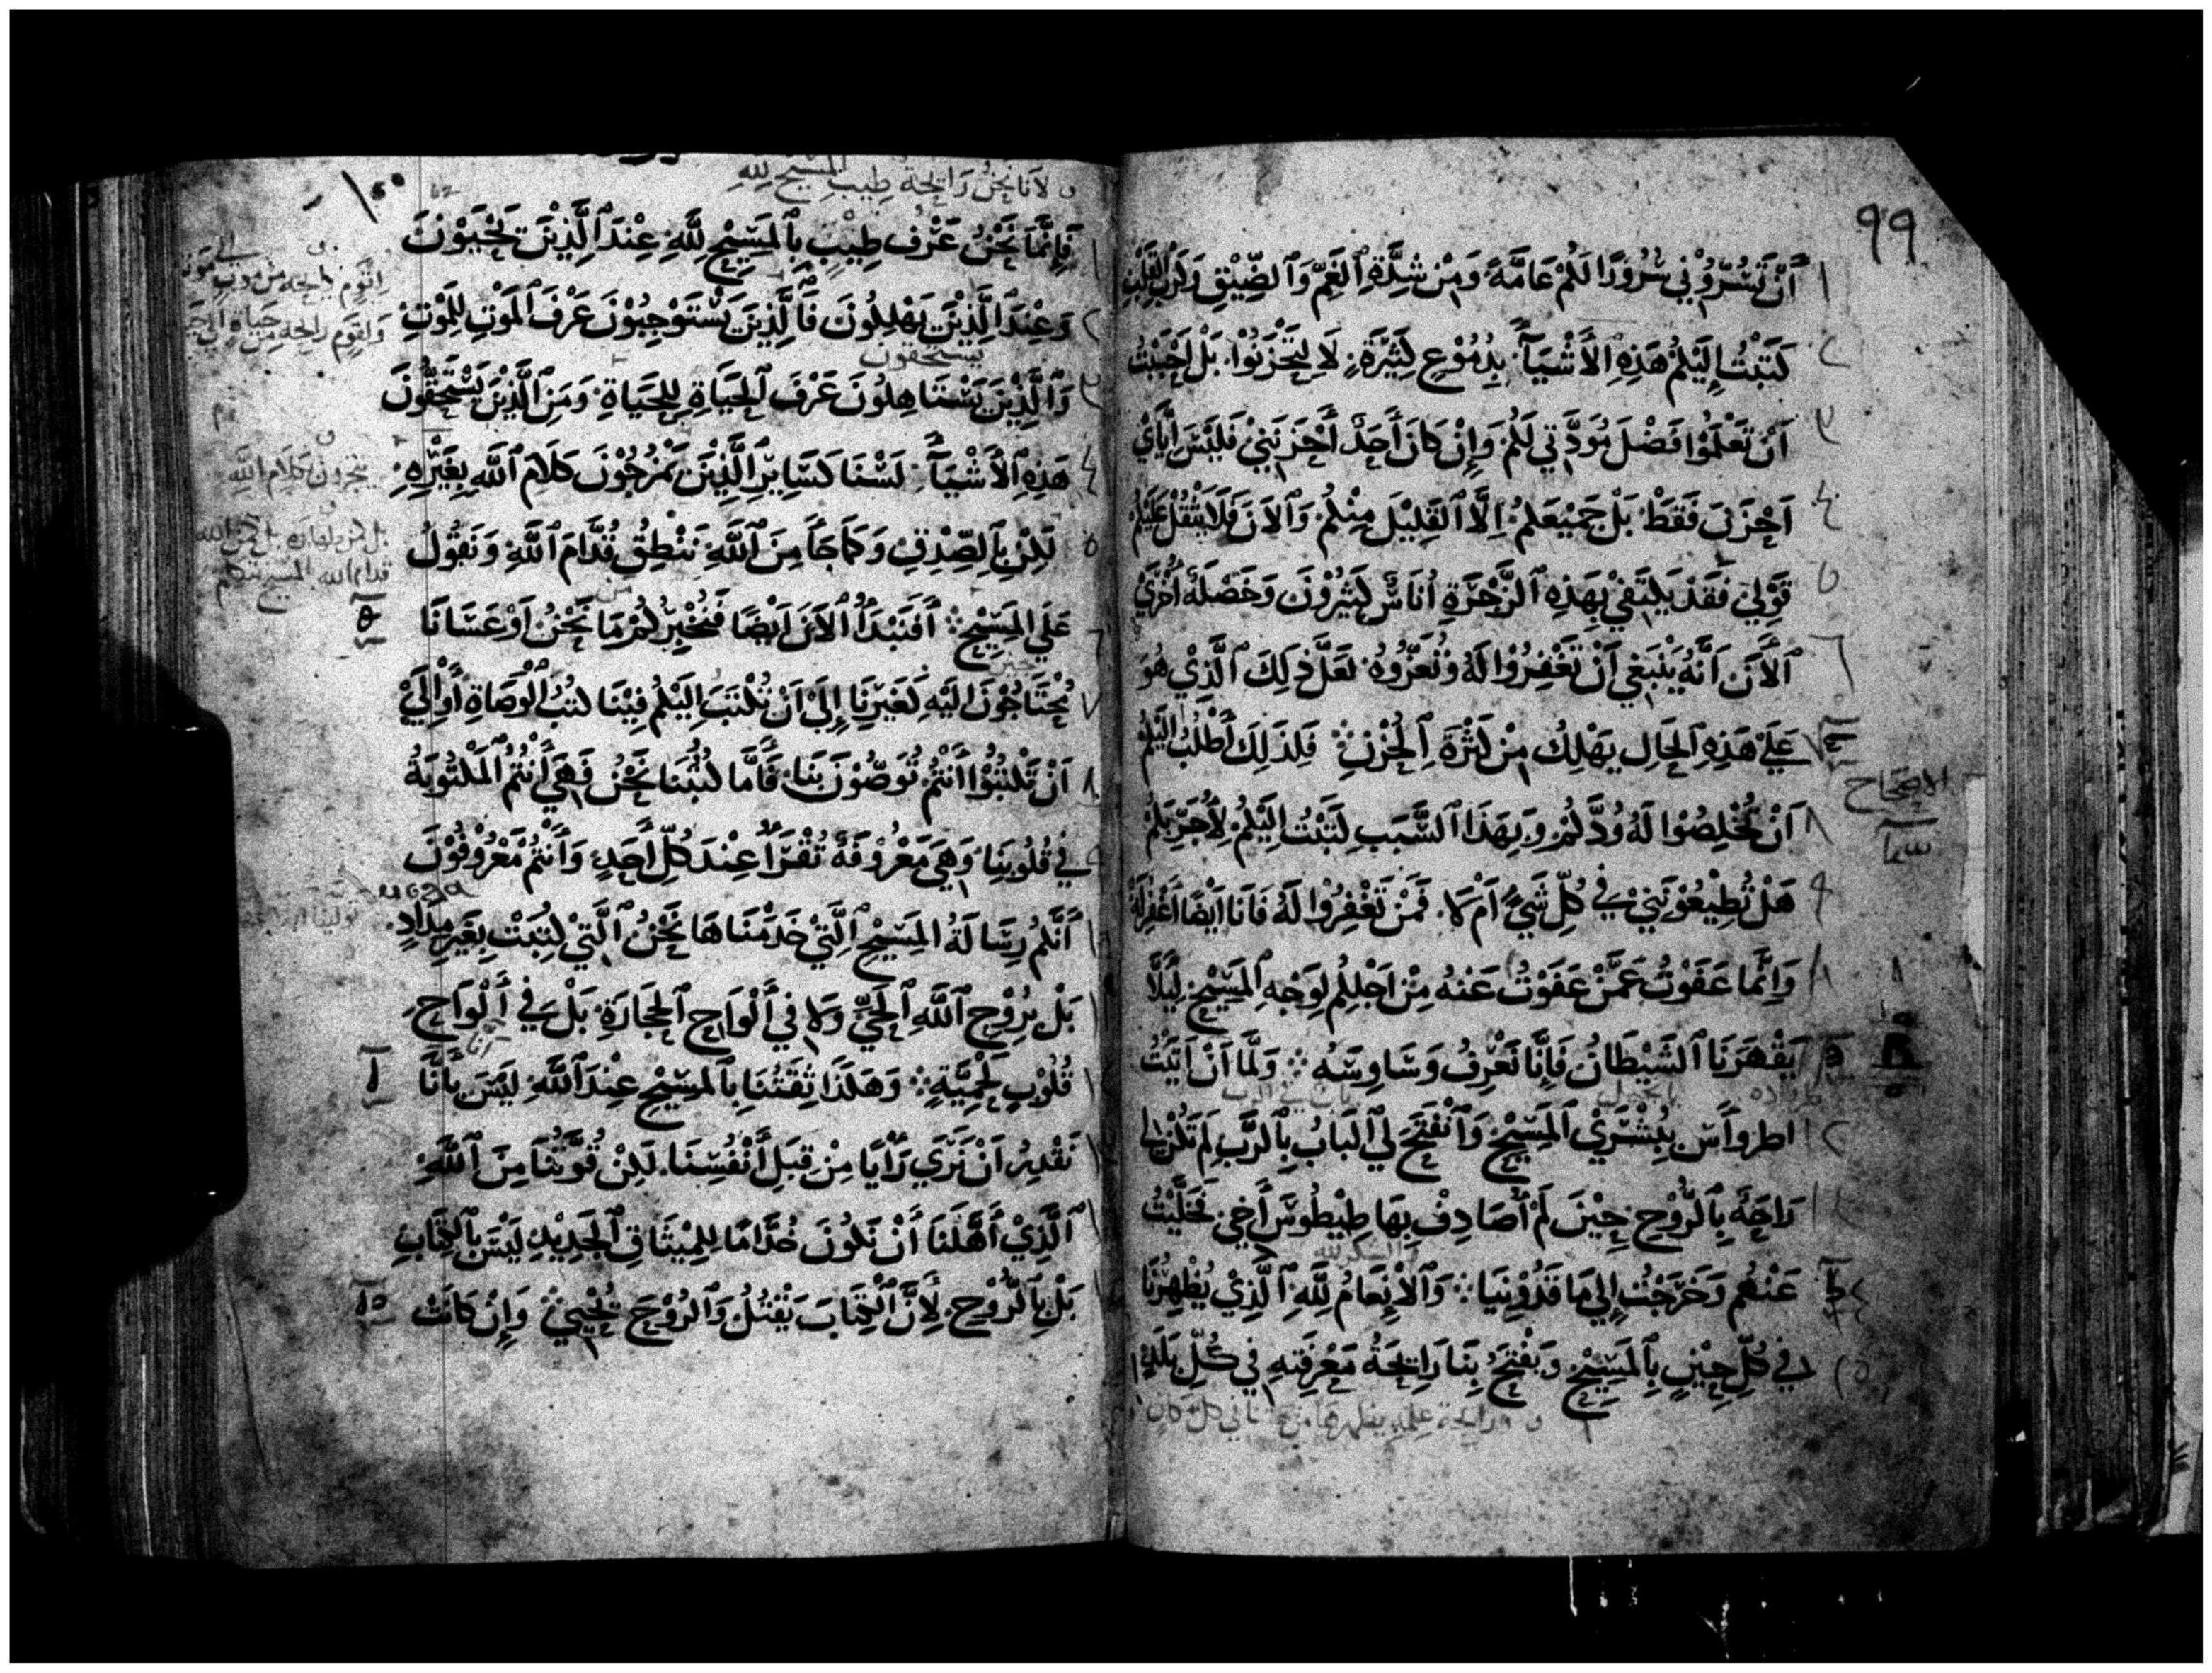 ٩٩
أَنْ تُسَرُّوْنِي سُرُورًا لَكُمْ عَامَّةً وَمِنْ شِدَّةِ ٱلْغَمِّ وَٱلضِّيْقِ وَكَرْبِ ٱلْقَلْبِ
كَتَبْتُ إِلَيْكُمْ هَذِهِ ٱلْأَشْيَآءَ بِدُمُوْعٍ كَثِيْرَةٍ لَا لِتَحْزَنُوْا بَلْ أَحْبَبْتُ
أَنْ تَعْلَمُوْا فَضْلَ مَوَدَّتِي لَكُمْ وَإِنْ كَانَ أَحَدٌ أَحْزَنَنِيْ فَلَيْسَ أَيَّايَ
أَحْزَنَ فَقَطْ بَلْ جَمِيْعَكُمْ إِلَّا ٱلْقَلِيْلَ مِنْكُمْ وَٱلْآنَ فَلَا يَثْقُلْ عَلَيْكُمْ
قَوْلِي فَقَدْ يَكْتَفِيْ بِهَذِهِ ٱلزَّجْرَةِ أُنَاسٌ كَثِيْرُوْنَ وَخَصْلَةٌ أُخْرَيْ
ٱلْآنَ أَنَّهُ يَنْبَغِي أَنْ تَغْفِرُوْا لَهُ وَتُعَزُّوهُ لَعَلَّ ذٰلِكَ ٱلَّذِيْ هُوَ
عَلَيْ هَذِهِ ٱلْحَالِ يَهْلِكُ مِنْ كَثْرَةِ ٱلْحُزْنِ ܀ فَلِذَلِكَ أَطْلُبُ إِلَيْكُمْ
الاصحاح
أَنْ تُخْلِصُوْا لَهُ وُدَّكُمْ وَبِهَذَا ٱلسَّبَبِ كَتَبْتُ إِلَيْكُمْ لِأُجَرِّبَكُمْ
هَلْ تُطِيْعُوْنَنِي فِي كُلِّ شَيْءٍ أَمْ لَا فَمَنْ تَغْفِرُوْا لَهُ فَأَنَا أَيْضًا أَغْفِرُ لَهُ
وَإِنَّمَا عَفَوْتُ عَمَّنْ عَفَوْتُ عَنْهُ مِنْ أَجْلِكُمْ لِوَجْهِ ٱلْمَسِيْحِ لِيَلَّا
يَقْهَرَنَا ٱلشَّيْطَانُ فَإِنَّا نَعْرِفُ وَسَاوِسَهُ ܀ وَلَمَّا أَنْ أَتَيْتُ
اطروأَس بِبُشْرَيْ ٱلْمَسِيْحِ وَٱنْفَتَحَ لِي ٱلْبَابُ بِٱلرَّبِّ لَمْ تَكُنْ لِي
رَاحَةٌ بِٱلرُّوْحِ حِيْنَ لَمْ أُصَادِفْ بِهَا طِيْطُوْسَ أَخِي فَخَلَّيْتُ
والشكر لله
عَنْهُمْ وَخَرَجْتُ إِلَي مَاقَدُوْنِيَا ܀ وَٱلْإِنْعَامُ لِلَّهِ ٱلَّذِيْ يُظْهِرُنَا
فِي كُلِّ حِيْنٍ بِٱلْمَسِيْحِ وَيَفْتَحُ بِنَا رَائِحَةَ مَعْرِفَتِهِ فِي كُلِّ بَلَدٍ
ورايحة علمه يظهرها في كل مكان
١٠٠
لاَنا نَحْنُ رَايِحَة طِيب المَسِيح للهِ
فَإِنَّمَا نَحْنُ عَرْفُ طِيْبٍ بِٱلْمَسِيْحِ لِلَّهِ عِنْدَ ٱلَّذِيْنَ يَحْيَوْنَ
وَعِنْدَ ٱلَّذِيْنَ يَهْلِكُونَ فَٱلَّذِيْنَ يَسْتَوْجِبُوْنَ عَرْفَ ٱلْمَوْتِ لِلْمَوْتِ
يستحقون
وَٱلَّذِيْنَ يَسْتَاهِلُونَ عَرْفَ ٱلْحَيَاةِ لِلْحَيَاةِ وَمَنِ ٱلَّذِيْنَ يَسْتَحِقُّوْنَ
هَذِهِ ٱلْأَشْيَآءَ لَسْنَا كَسَايِرِ ٱلَّذِيْنَ يَمْزُجُوْنَ كَلَامَ ٱللَّهِ بِغَيْرِهِ
لَكِنْ بِٱلصِّدْقِ وَكَمَا جَآءَ مِنَ ٱللَّهِ نَنْطِقُ قُدَّامَ ٱللَّهِ وَنَقُوْلُ
عَلَي ٱلْمَسِيْحِ ܀ أَفَنَبْدَأُ ٱلْآنَ أَيْضًا فَنُخْبِرُكُمْ مَا نَحْنُ أَوْ عَسَانَا
نَحْتَاجُوْنَ إِلَيْهِ كَغَيْرِنَا إِلَيَ أَنْ تُكْتَبَ إِلَيْكُمْ فِيْنَا كُتُبُ ٱلْوَصَاةِ أَوْ إِلَيَ
أَنْ تَكْتُبُوْا أَنْتُمْ تُوَصُّوْنَ بِنَا فَأَمَّا كُتُبُنَا نَحْنُ فَهِيَ أَنْتُمُ ٱلْمَكْتُوْبَةُ
فِي قُلُوْبِنَا وَهِيَ مَعْرُوْفَةٌ تُقْرَأُ عِنْدَ كُلِّ أَحَدٍ وَأَنْتُمْ مَعْرُوْفُوْنَ
أَنَّكُمْ رِسَالَةُ ٱلْمَسِيْحِ ٱلَّتِيْ خَدَمْنَاهَا نَحْنُ ٱلَّتِيْ كُتِبَتْ بِغَيْرِ مِدَادٍ
بَلْ بِرُوْحِ ٱللَّهِ ٱلْحَيِّ وَلَا فِي أَلْوَاحِ ٱلْحِجَارَةِ بَلْ فِي أَلْوَاحِ
قُلُوْبٍ لَحْمِيَّةٍ ܀ وَهَكَذَا ثِقَتُنَا بِٱلْمَسِيْحِ عِنْدَ ٱللَّهِ لَيْسَ بِأَنَّا
نَقْدِرُ أَنْ نَرَي رَأْيًا مِنْ قِبَلِ أَنْفُسِنَا لَكِنْ قُوَّتُنَا مِنَ ٱللَّهِ
ٱلَّذِيْ أَهَّلَنَا أَنْ نَكُوْنَ خُدَّامًا لِلْمِيْثَاقِ ٱلْجَدِيْدِ لَيْسَ بِٱلْكِتَابِ
بَلْ بِٱلرُّوْحِ لِأَنَّ ٱلْكِتَابَ يَقْتُلُ وَٱلرُّوْحَ يُحْيِيْ ܀ وَإِنْ كَانَتْ